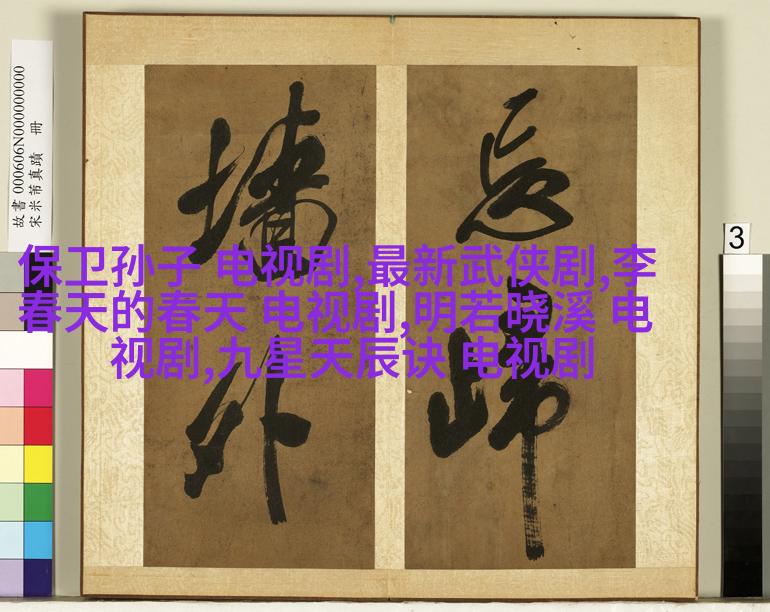 保卫孙子 电视剧,最新武侠剧,李
春天的春天 电视剧,明若晓溪 电
视剧,九星天辰诀 电视剧
忘歸
墻外
宋米芾真蹟 冊
3